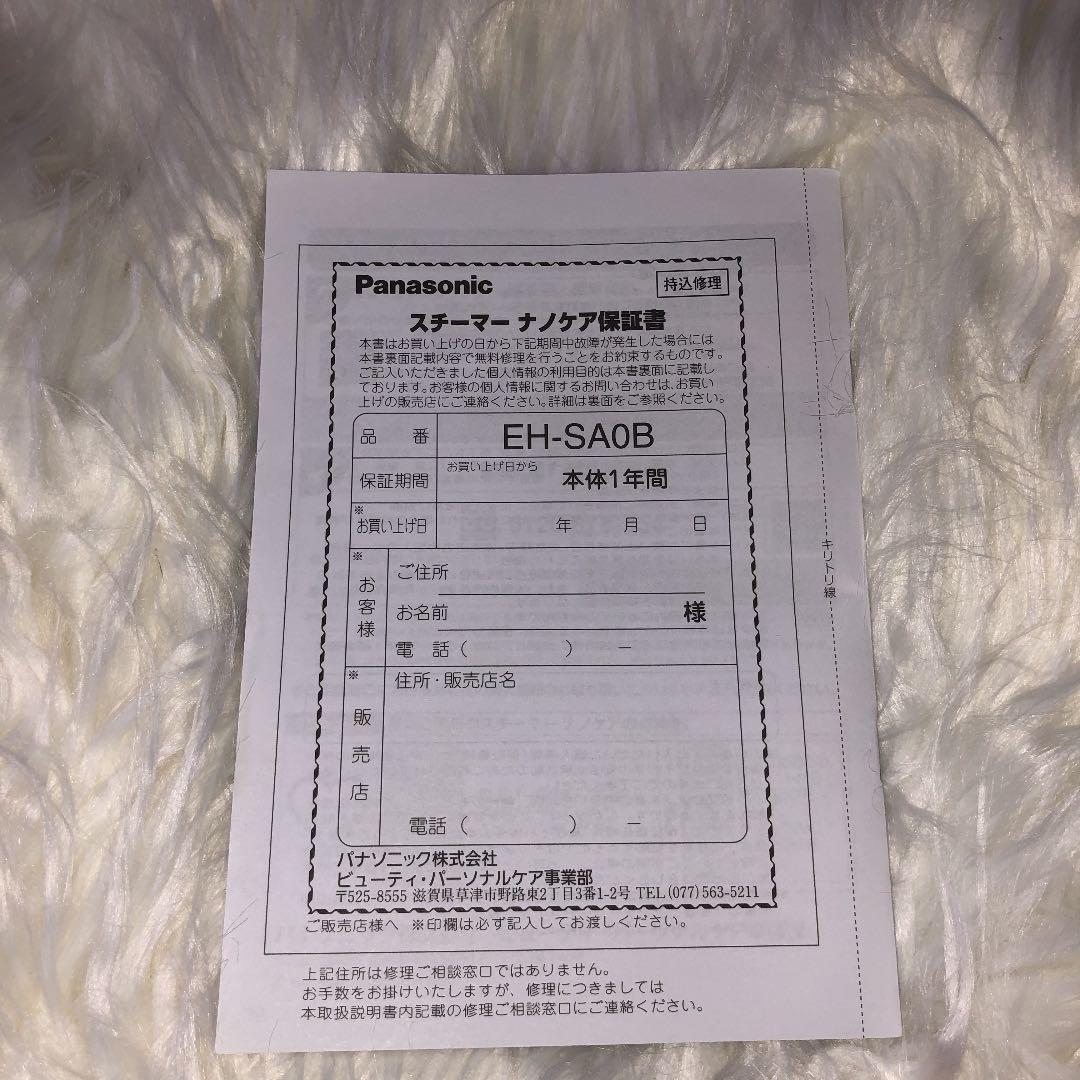 Panasonic
持込修理
スチーマー ナノケア保証書
本書はお買い上げの日から下記期間中故障が発生した場合には
本書裏面記載内容で無料修理を行うことをお約束するものです。
ご記入いただきました個人情報の利用目的は本書裏面に記載し
ております。お客様の個人情報に関するお問い合わせは、お買い
上げの販売店にご連絡ください。詳細は裏面をご参照ください。
品 番 EH-SA0B
保証期間 お買い上げ日から 本体1年間
※お買い上げ日 年 月 日
※お客様
ご住所
お名前 様
電 話 ( ) ー
※販売店
住所・販売店名
電話 ( ) ー
パナソニック株式会社
ビューティ・パーソナルケア事業部
〒525-8555 滋賀県草津市野路東2丁目3番1-2号 TEL(077)563-5211
ご販売店様へ ※印欄は必ず記入してお渡しください。
上記住所は修理ご相談窓口ではありません。
お手数をお掛けいたしますが、修理につきましては
本取扱説明書内記載の修理ご相談窓口にご連絡ください。
キリトリ線